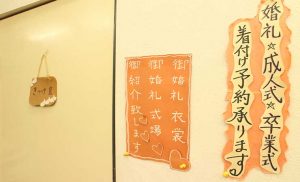 婚礼☆成人式☆卒業式
着付け予約承ります
御婚礼衣裳
御婚礼式場
御紹介致します